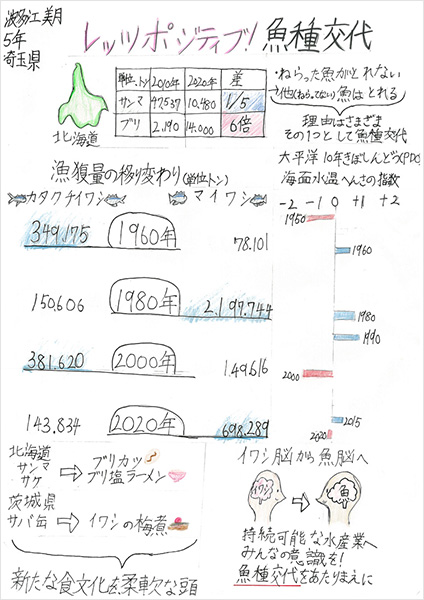 波多江 美月
5年
埼玉県
レッツポジティブ!魚種交代
北海道
単位.トン 2010年 2020年 差
サンマ 47.537 10.480 1/5
ブリ 2.190 14.000 6倍
・ねらった魚がとれない
→他(ねらってない)魚はとれる
理由はさまざま
その1つとして魚種交代
太平洋10年きぼしんどう(PDO)
海面水温へんさの指数
-2 -1 0 +1 +2
漁獲量の移り変わり(単位トン)
カタクチイワシ マイワシ
349.175 1960年 78.101
150.606 1980年 2.197.744
381.620 2000年 149.616
143.834 2020年 698.289
1950
1960
1980
1990
2000
2015
2020
北海道
サンマ
サケ
→ブリカツ
ブリ塩ラーメン
茨城県
サバ缶⇒イワシの梅煮
新たな食文化を柔軟な頭
イワシ脳から魚脳へ
イワシ → 魚
持続可能な水産業へ
みんなの意識を!
魚種交代をあたりまえに